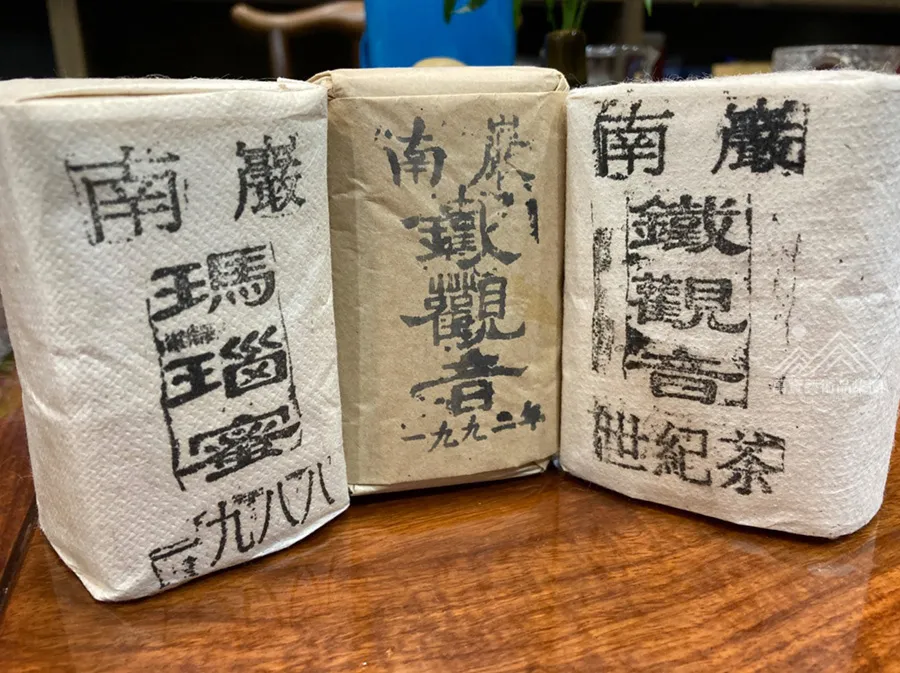 南巖
瑪
瑙
蜜
一九八八
南巖
鐵
觀
音
一九九二年
南巖
鐵
觀
音
世紀茶